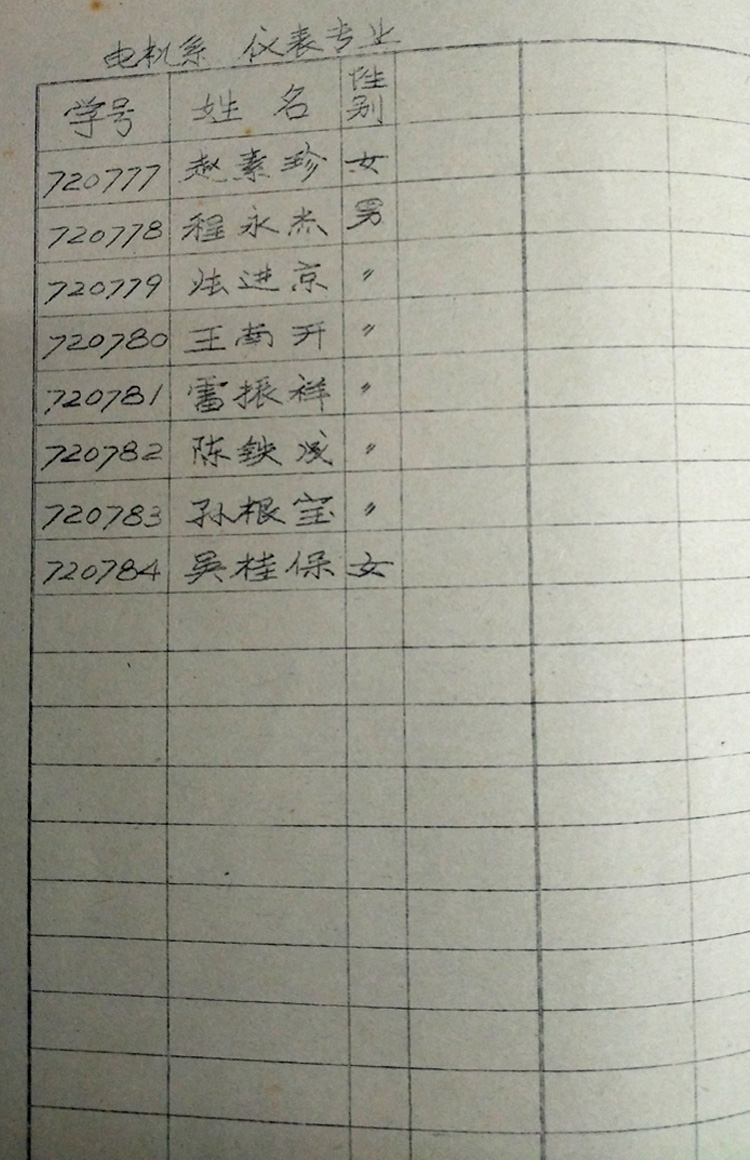 电机系 仪表专业
学号 姓名 性别
720777 赵素珍 女
720778 程永杰 男
720779 进京 〃
720780 王南开 〃
720781 雷振祥 〃
720782 陈铁成 〃
720783 孙根宝 〃
720784 吴桂保 女